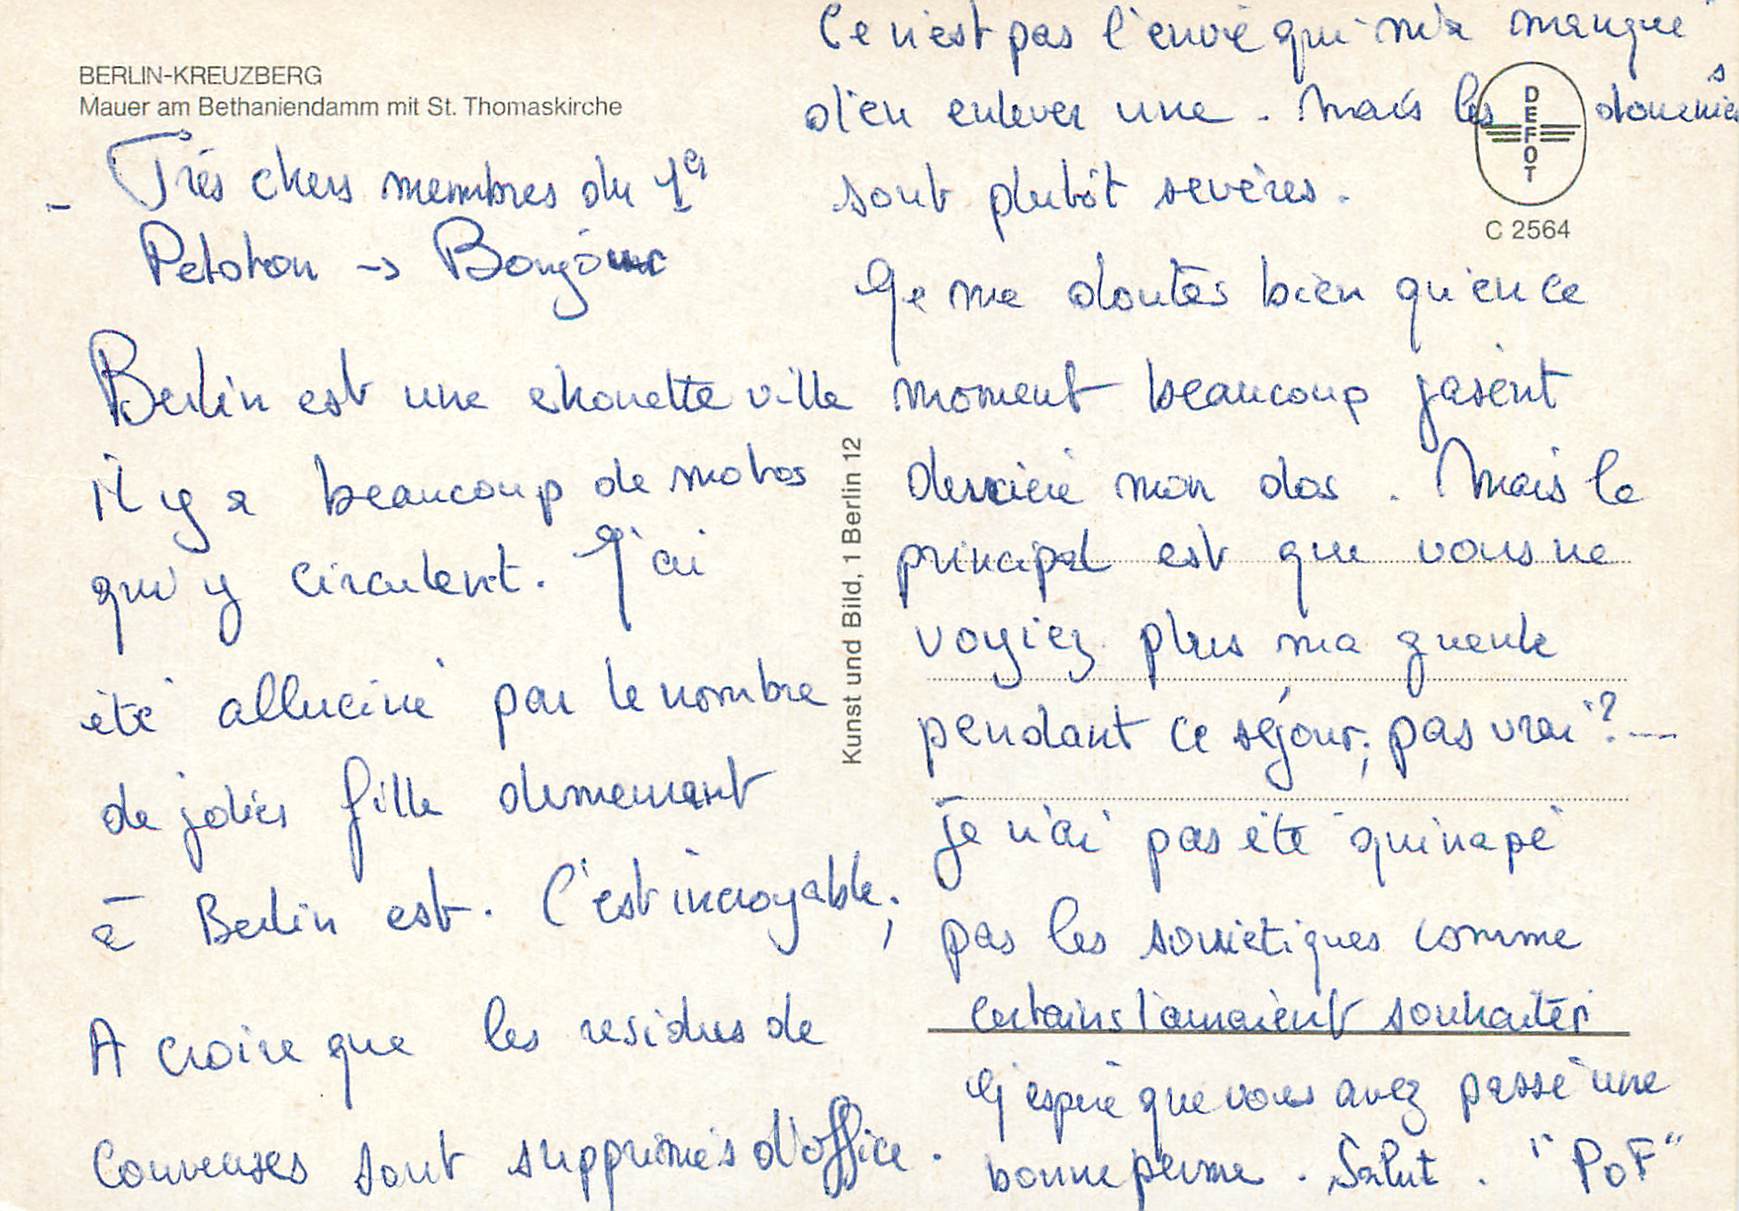 BERLIN-KREUZBERG
Mauer am Bethaniendamm mit St. Thomaskirche
- Très chers membres du 1er
Peloton → Bonjour
Berlin est une chouette ville
il y a beaucoup de motos
qui y circulent. J'ai
été alluciné par le nombre
de jolies fille demeurant
à Berlin est. C'est incroyable;
A croire que les residus de
couveuses sont supprimés d'office.
Ce n'est pas l'envie qui m'a manqué
d'en enlever une. Mais les douaniers
sont plutôt sevères.
Je me doutes bien qu'en ce
moment beaucoup jasent
derrière mon dos. Mais le
principal est que vous ne
voyiez plus ma gueule
pendant ce séjour; pas vrai?---
je n'ai pas été quinapé
pas les soviétiques comme
certains l'auraient souhaiter
J'espère que vous avez passé une
bonne perme. Salut. "PoF"
DEFOT
C 2564
Kunst und Bild, 1 Berlin 12